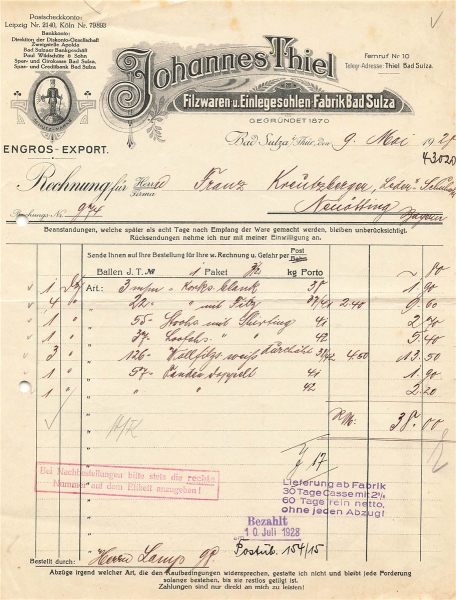 Postscheckkonto:
Leipzig Nr. 2140, Köln Nr. 79893
Bankkonto:
Direktion der Diskonto-Gesellschaft
Zweigstelle Apolda
Bad Sulzaer Bankgeschäft
Paul Wildschütz & Sohn
Spar- und Girokasse Bad Sulza,
Spar- und Creditbank Bad Sulza
Johannes Thiel
Fernruf Nr 10
Telegr.-Adresse: Thiel Bad Sulza.
Filzwaren u. Einlegesohlen-Fabrik Bad Sulza
GEGRÜNDET 1870
ENGROS-EXPORT.
Bad Sulza i. Thür., den 9. Mai 1928
43020
Rechnung für Herrn
Firma
Franz Kreutzberger, Leder u.
Rechnungs-Nr. 974
Neuötting
Bayern
Beanstandungen, welche später als acht Tage nach Empfang der Ware gemacht werden, bleiben unberücksichtigt.
Rücksendungen nehme ich nur mit meiner Einwilligung an.
Sende Ihnen auf Ihre Bestellung für Ihre w. Rechnung u. Gefahr per Post
Bahn
Ballen J. T. № 1 Paket kg Porto 80
1 Art.: 3 m/m Kork blank 38 1.90
4 22 mit Filz 37/41 2.40 9.60
1 55 Stroh mit Shirting 41 2.70
1 37 Loofah 42 5.40
3 126 Wollfilz weiß 4.50 13.50
1 57 doppelt 41 1.90
1 42 2.20
RM: 38.00
Bei Nachbestellungen bitte stets die rechte
Nummer auf dem Etikett anzugeben!
Lieferung ab Fabrik
30 Tage Cassemit 2%
60 Tage rein netto,
ohne jeden Abzug!
Bezahlt
10. Juli 1928
Postüb. 154/15
Bestellt durch: Herrn Lamp
Abzüge irgend welcher Art, die den Kaufbedingungen widersprechen, gestatte ich nicht und bleibt jede Forderung
solange bestehen, bis sie restlos getilgt ist.
Zahlungen sind nur direkt an mich zu leisten.